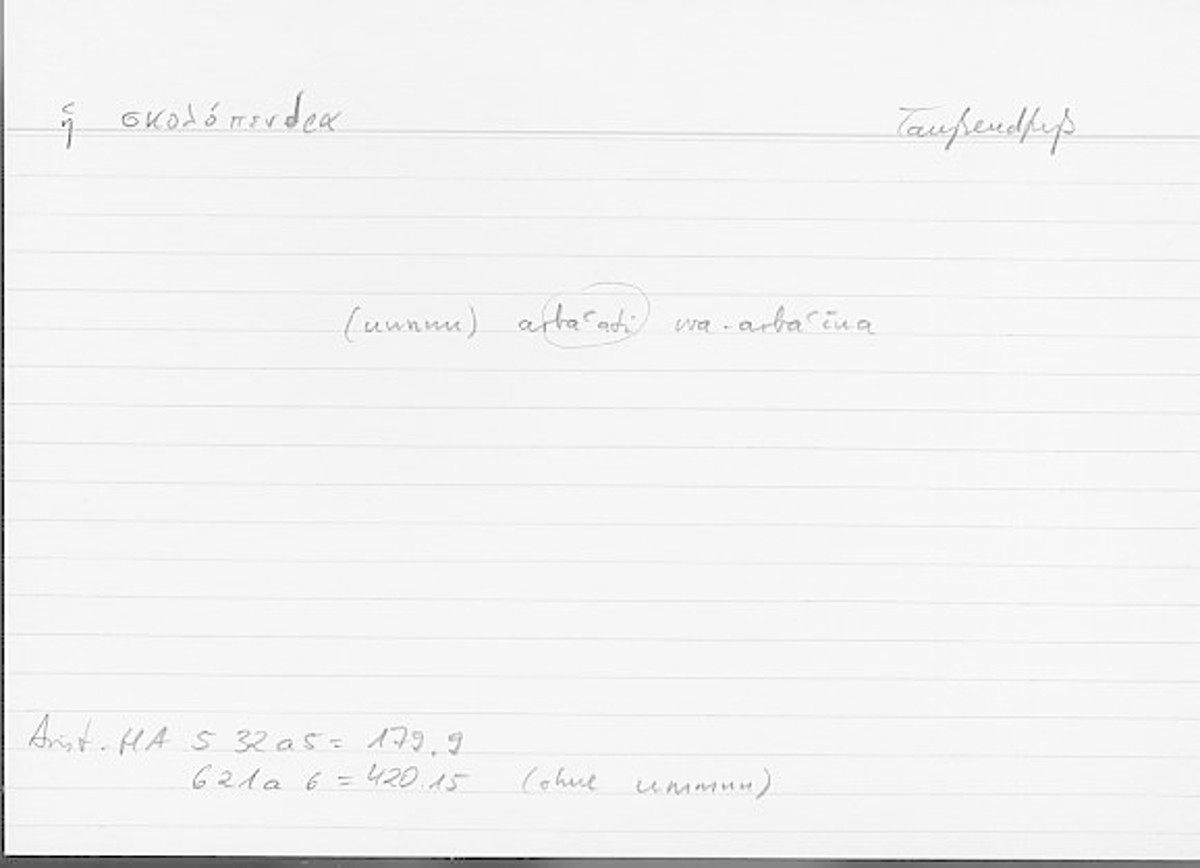 ἡ σκολόπενδρα Taußendfuß
(ummu) arbaʿati wa-arbaʿīna
Arist. HA 532a5 = 179.9
621a6 = 420.15 (ohne ummu)